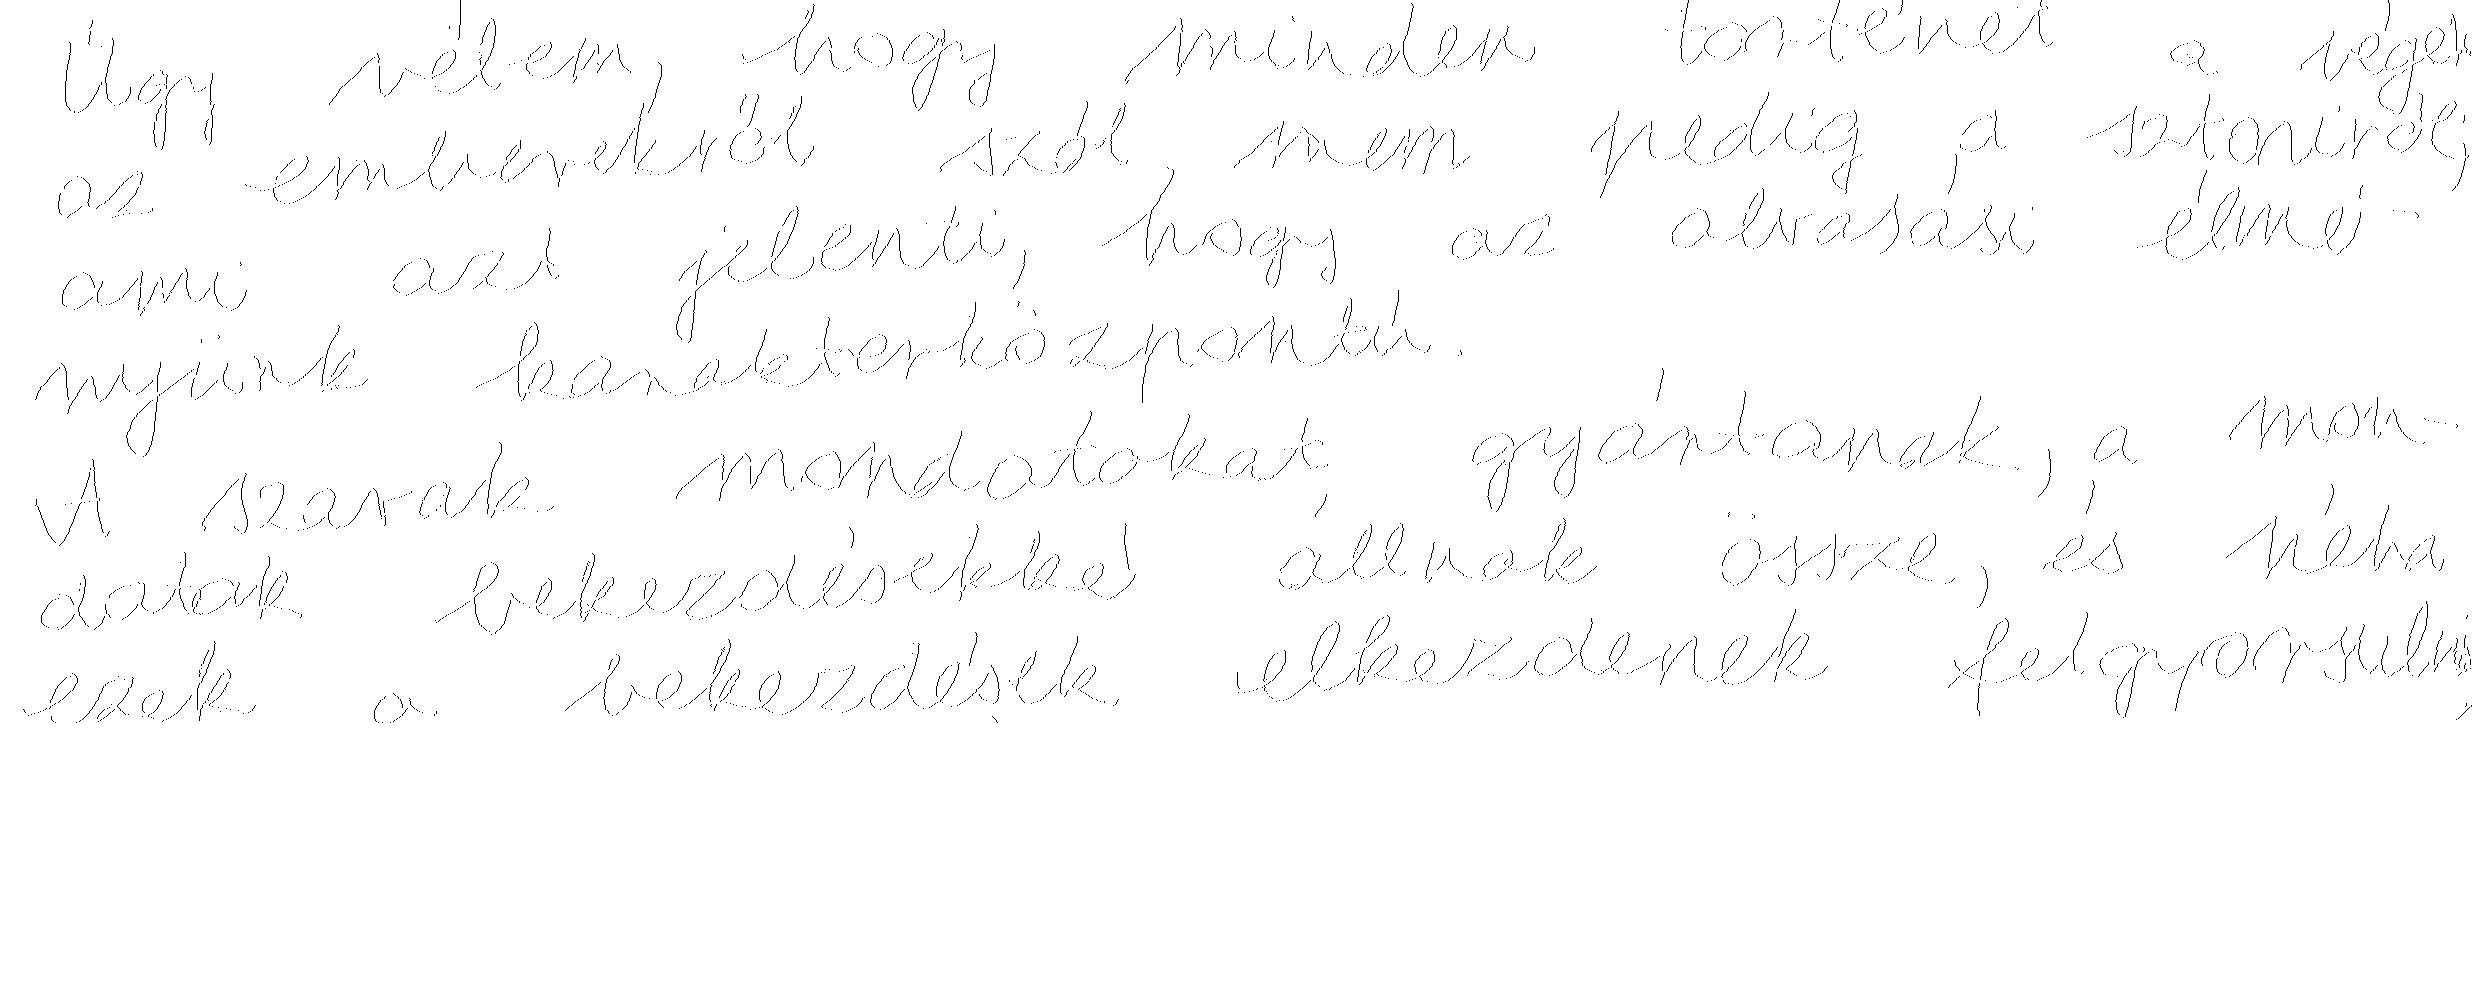 Úgy vélem, hogy minden történet a végén
az emberekről szól, nem pedig a sztoriról,
ami azt jelenti, hogy az olvasási élmé-
nyünk karakterközpontú.
A szavak mondatokat gyártanak, a mon-
datok bekezdésekké állnak össze, és néha
ezek a bekezdések elkezdenek felgyorsulni,